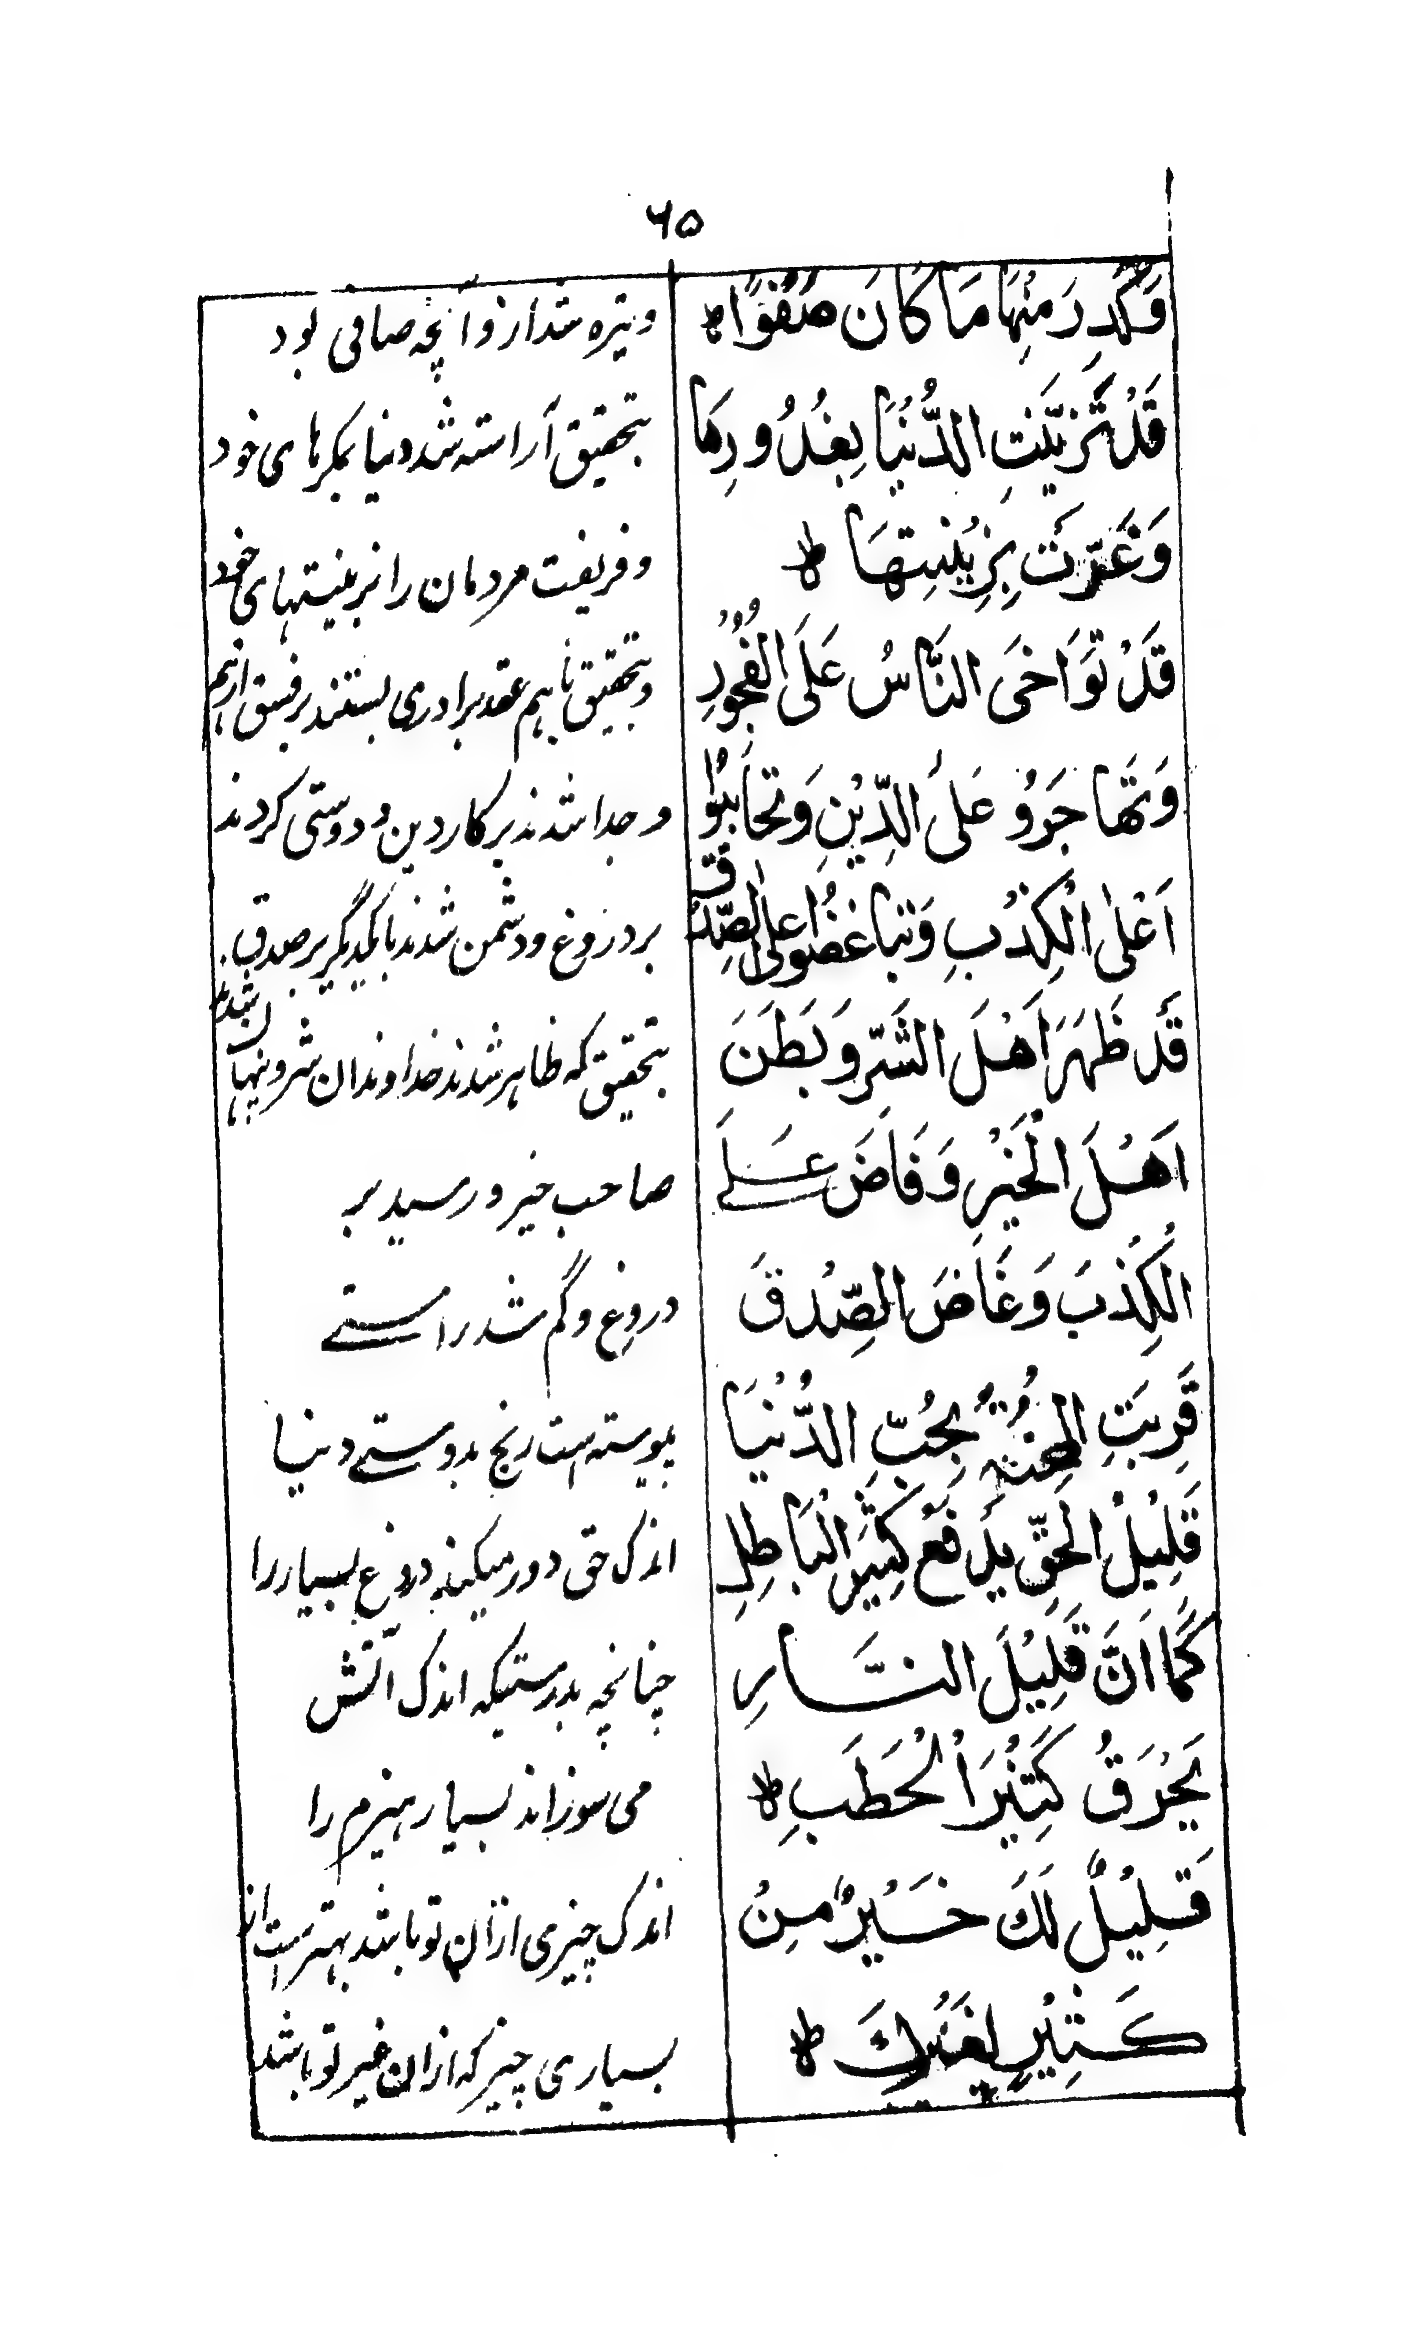 ۶۵
وَكَدِرَ مِنْهَا مَا كَانَ صَفْوًا ه
وتیره شد ازو آنچه صافی بود
قَدْ تَزَيَّنَتِ الدُّنْيَا بِغُدُورِهَا
بتحقیق آراسته شد دنیا بمکرهای خود
وَغَرَّتْ بِزِيْنِتِهَا ط
و فریفت مردمان را بزینتهای خود
قَدْ تَوَاخَى النَّاسُ عَلَى الْفُجُوْرِ
و بتحقیق باهم عقد برادری بستند بر فسق از هم
وَتَهَاجَرُو عَلَى الدِّيْنِ وَتَحَابَبُوْا
و جدا شدند بر کار دین و دوستی کردند
اَعْلَى الْكِذْبِ وَتَبَاغَضُوا عَلَى الصِّدْقِ
بر دروغ و دشمن شدند با یکدیگر بر صدق
قَدْ ظَهَرَ اَهْلَ الشَّرِّ وَبَطَنَ
بتحقیق که ظاهر شدند خداوندان شر و پنهان شدند
اَهْلَ الْخَيْرِ وَفَاضَ عَلَے
صاحب خیر و رسید بر
الْكِذْبَ وَغَاضَ الصِّدْقَ
دروغ و گم شد راستے
قَرِبَتِ الْمِحْنَةُ بِحُبِّ الدُّنْيَا
پیوسته است رنج بدوستے دنیا
قَلِيْلُ الْحَقِّ يَدْفَعُ كَثِيْرَ الْبَاطِلِ
اندک حق دور میکند دروغ بسیار را
كَمَا اَنَّ قَلِيْلَ النَّارِ
چنانچه بدرستیکه اندک آتش
يَحْرَقُ كَثِيْرَ الْحَطَبِ ط
می سوزاند بسیار هیزم را
قَلِيْلٌ لَكَ خَيْرٌ مِنْ
اندک چیزی از آن تو باشد بهتر است از
كَثِيْرٍ لِغَيْرِكَ ط
بسیاری چیز که از آن غیر تو باشد